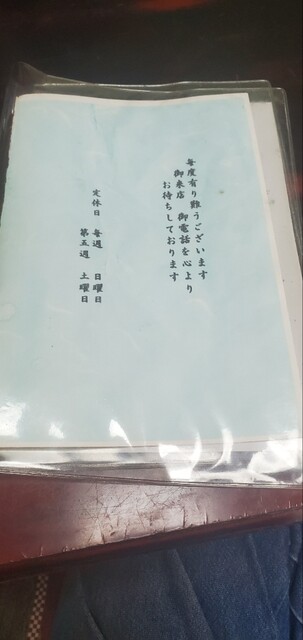 毎度有り難うございます
御来店 御電話を心より
お待ちしております
定休日 毎週 日曜日
第五週 土曜日